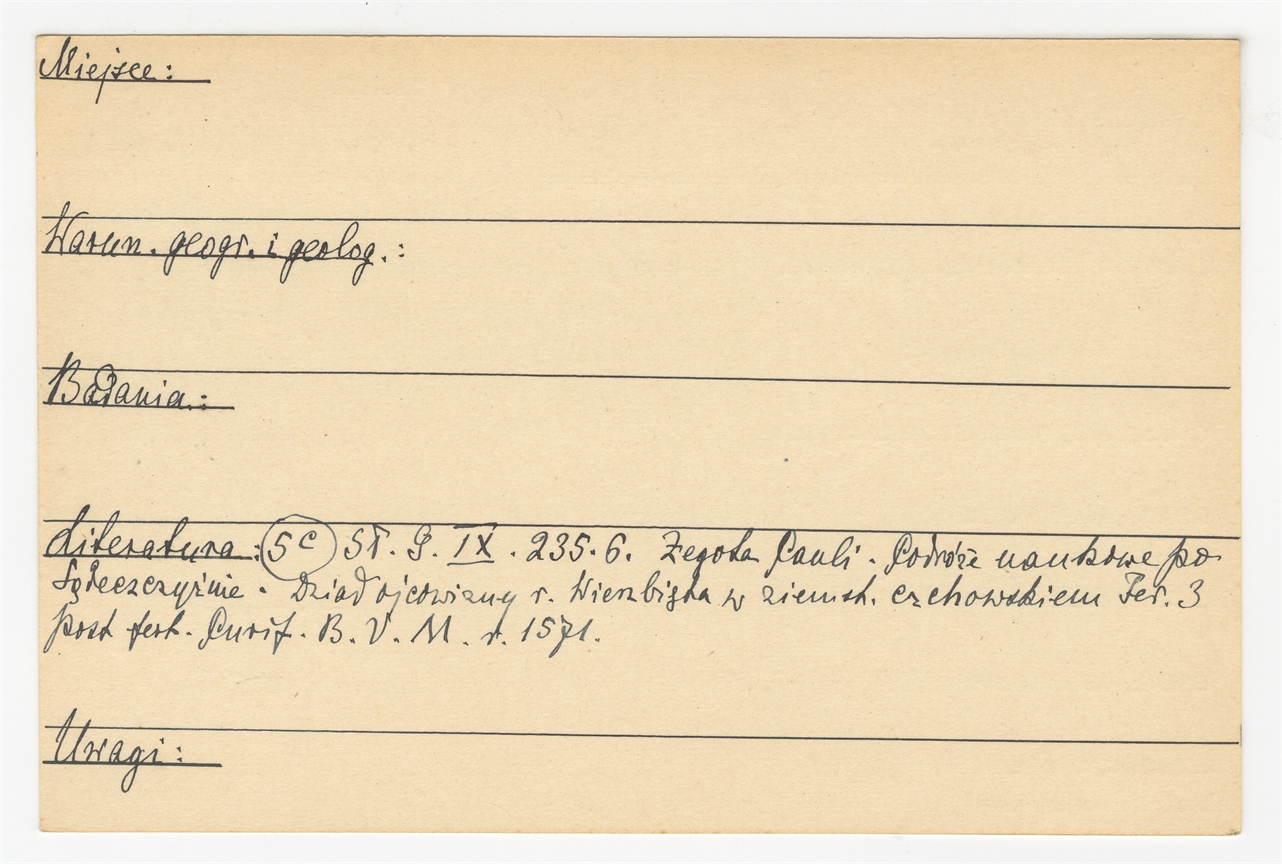 Miejsce:
Warun. geogr. i geolog.:
Badania:
Literatura: 5c St. G. IX. 235.6. Żegota Pauli. Podróże naukowe po
Sądecczyźnie. Dział ojcowizny r. Wierzbięta w ziemst. czchowskiem Fer. 3
post fest. Purif. B. V. M. r. 1571.
Uwagi: